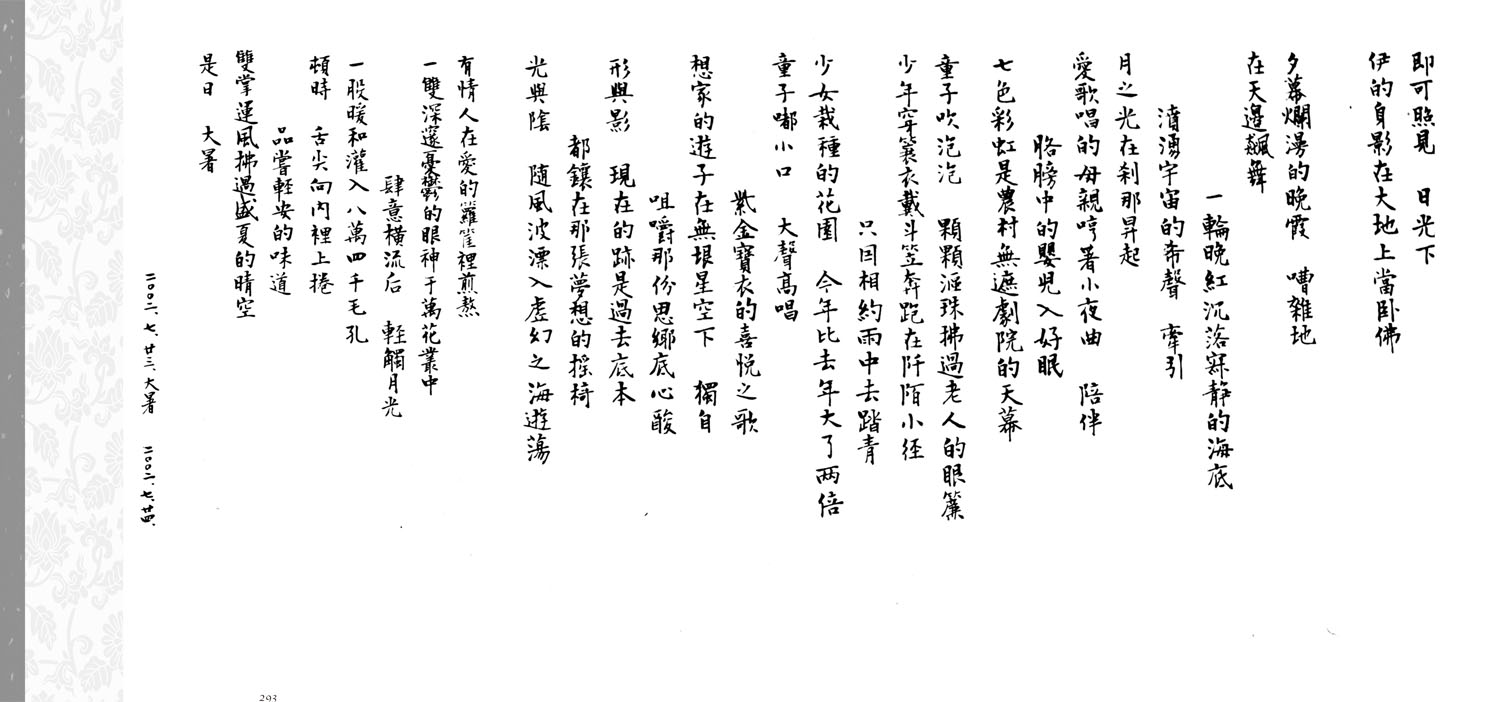 即可照見　日光下
伊的身影在大地上當臥佛
夕幕爛漫的晚霞　嘈雜地
在天邊飆舞
一輪晚紅沉落寂静的海底
濆湧宇宙的希聲　牽引
月之光在剎那昇起
愛歌唱的母親哼著小夜曲　陪伴
胳膀中的嬰児入好眠
七色彩虹是農村無遮劇院的天幕
童子吹泡泡　顆顆滙珠拂過老人的眼簾
少年穿簑衣戴斗笠奔跑在阡陌小徑
只因相約雨中去踏青
少女栽種的花園　今年比去年大了两倍
童子嘟小口　大聲高唱
紫金寶衣的喜悅之歌
想家的遊子在無垠星空下　獨自
咀嚼那份思鄉底心酸
形與影　現在的跡是過去底本
都鑲在那張夢想的搖椅
光與陰　隨風波漂入虛幻之海遊蕩
有情人在愛的籮筐裡煎熬
一雙深邃憂鬱的眼神于萬花叢中
肆意橫流后　輕觸月光
一股暖和灌入八萬四千毛孔
頓時　舌尖向内裡上捲
品嘗輕安的味道
雙掌運風拂過盛夏的晴空
是日　大暑
二〇〇二、七、廿三、大暑　二〇〇二、七、廿四、
293